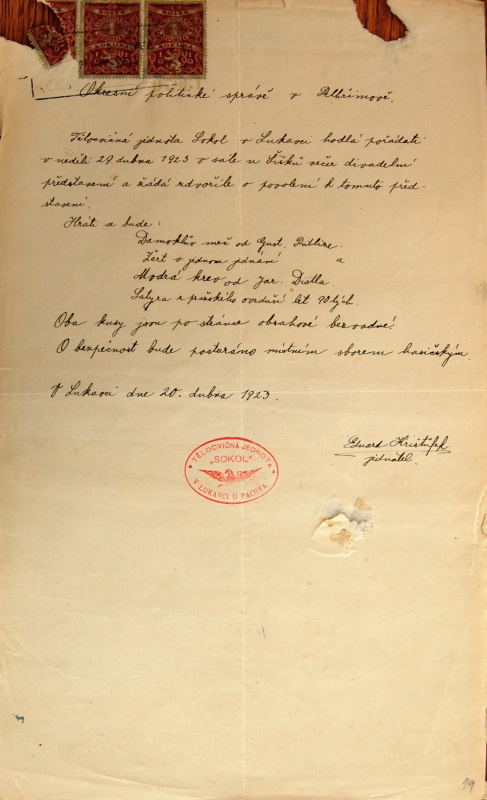 KOLEK
KOLEK
1
KORUNA
KORUNA
Okresní politické správě v Pelhřimově.
Tělocvičná jednota Sokol v Lukavci hodlá pořádati
v neděli 29 dubna 1923 v sále u Šišků večer divadelní
představení a žádá zdvořile o povolení k tomuto před-
stavení.
Hráti se bude:
Damoklův meč od Gust. Putlize.
Žert v jednom jednání a
Modrá krev od Jar.
Satyra z pražského ovzduší let 90tých.
Oba kusy jsou po stránce obsahové bezvadné!
O bezpečnost bude postaráno místním sborem hasičským.
V Lukavci dne 20. dubna 1923.
Eduard Krištůfek
jednatel.
TĚLOCVIČNÁ JEDNOTA
"SOKOL"
V LUKAVCI U PACOVA
19